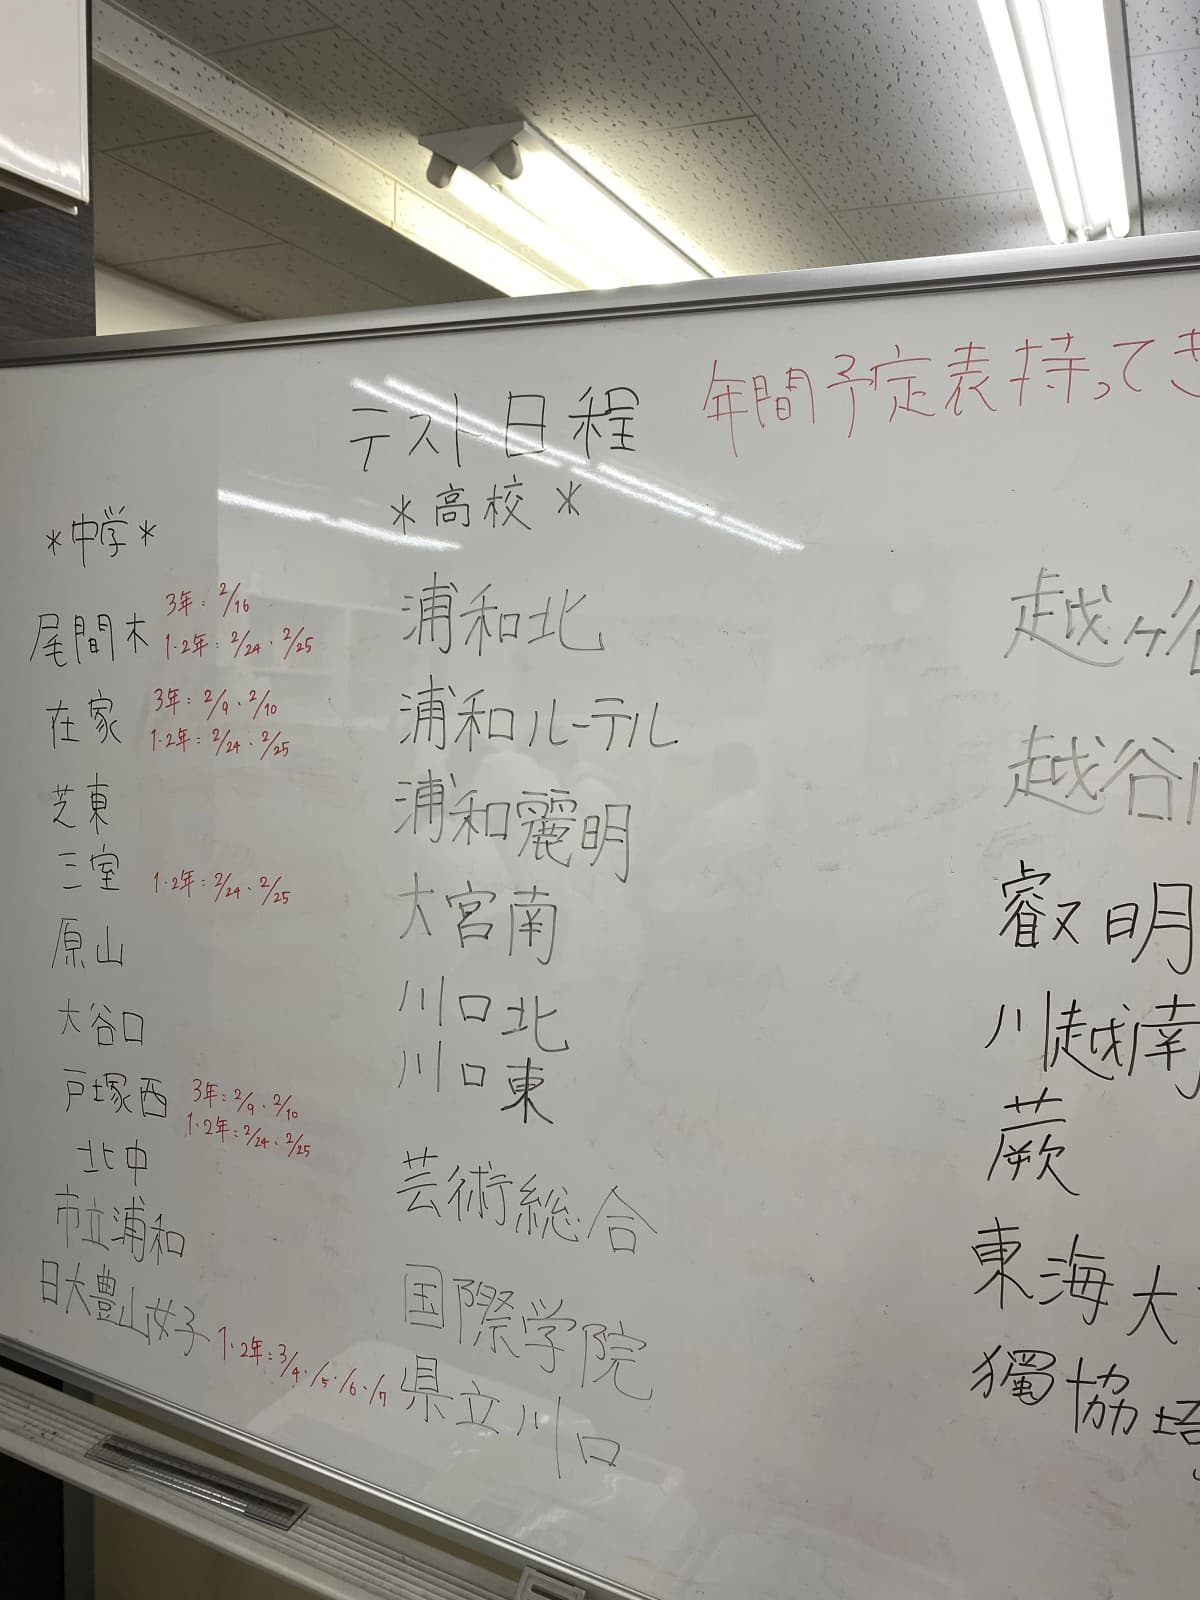 テスト日程
年間予定表持ってき
*中学*
尾間木
3年:2/16
1·2年:2/24·2/25
在家
3年:2/9·2/10
1·2年:2/24·2/25
芝東
三室
1·2年:2/24·2/25
原山
大谷口
戸塚西
3年:2/9·2/10
1·2年:2/24·2/25
北中
市立浦和
日大豊山女子
1·2年:3/4·/5·/6·/7
*高校*
浦和北
浦和ルーテル
浦和麗明
大宮南
川口北
川口東
芸術総合
国際学院
県立川口
越ヶ谷
越谷
叡明
川越南
蕨
東海大
獨協埼